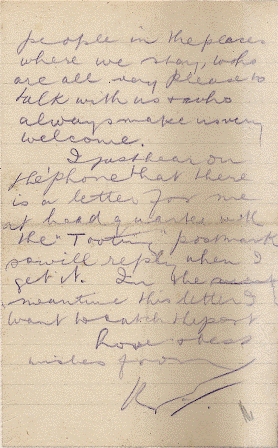 people in the places
where we stay, who
are all very pleased to
talk with us & who
always make us very
welcome.
I just hear on
the 'phone that there
is a letter for me
at head quarters with
the "Tooting" postmark
so will reply when I
get it. In the
meantime this letter I
want to catch the post
Love & best
wishes from
R